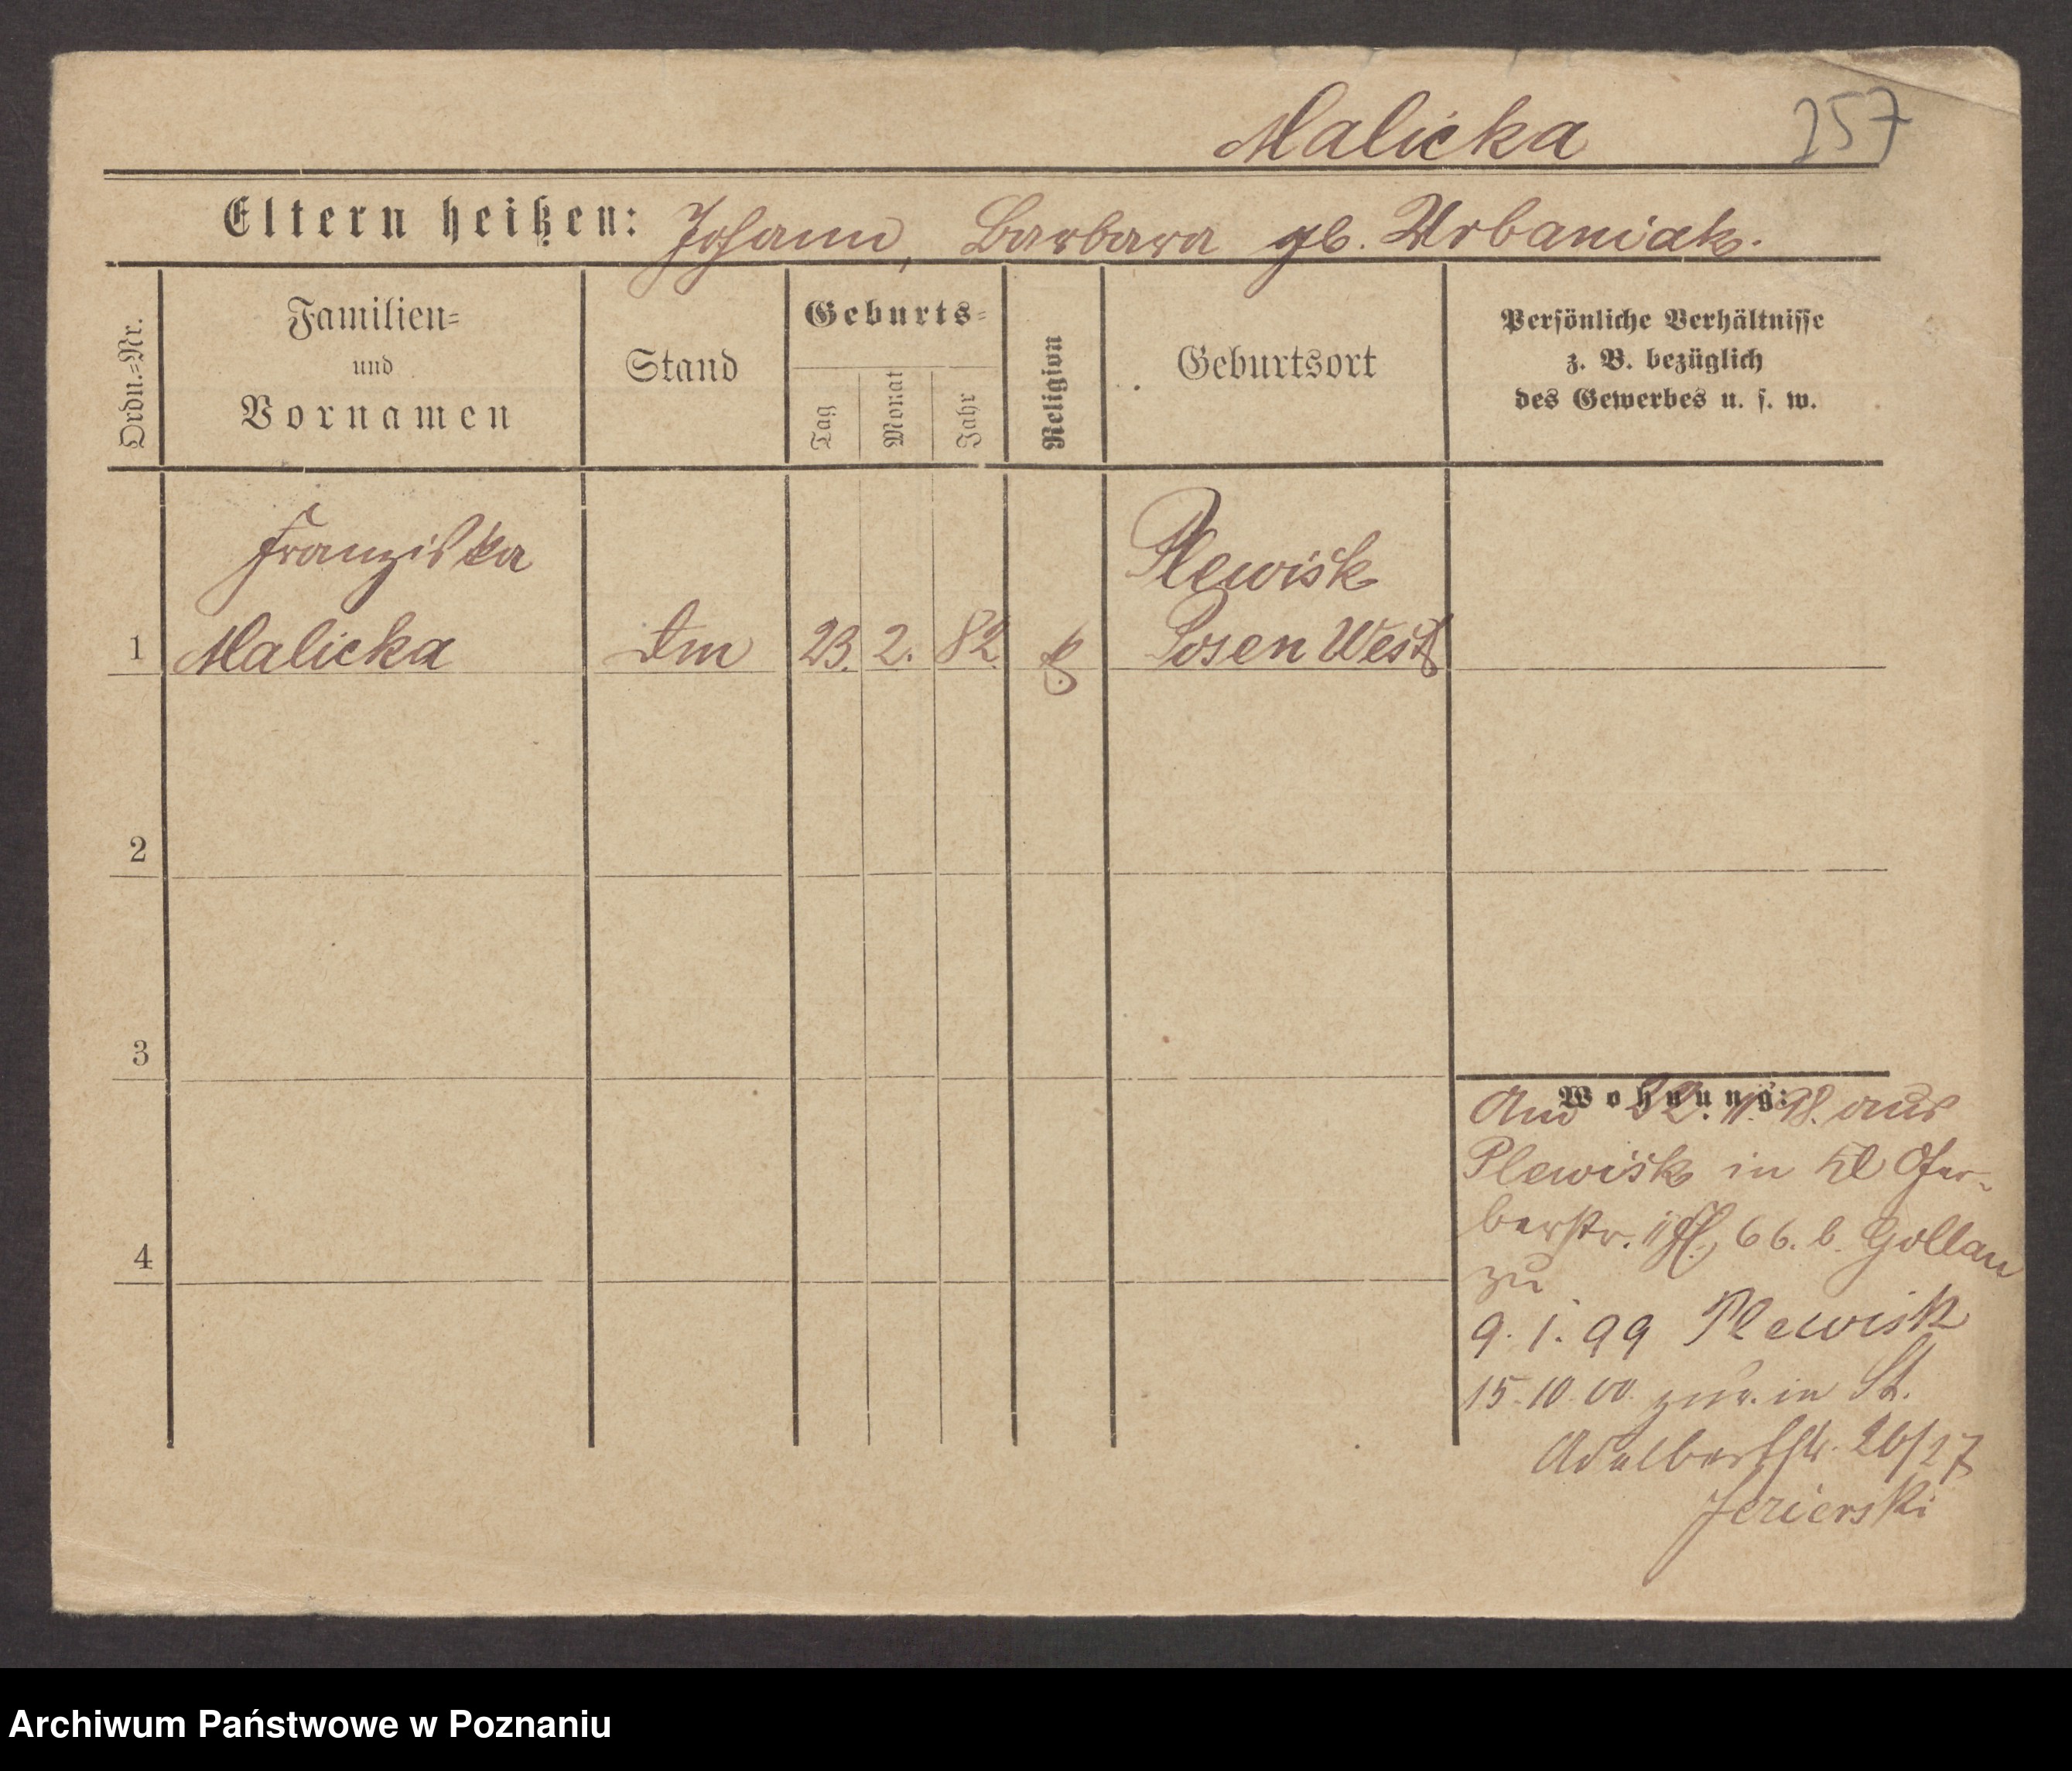 Malicka 257
Eltern heißen: Johann, Barbara gb. Urbaniak.
Ordn.=Nr.
Familien=
und
Vornamen
Stand
Geburts=
Tag
Monat
Jahr
Religion
Geburtsort
Persönliche Verhältnisse
z. B. bezüglich
des Gewerbes u. s. w.
Franziska
Malicka
Plewisk
1 Dm 23. 2. 82 k Posen West
2
3
4
Wohnung:
22. 11. 98. aus
Plewisk in Kl Ger-
berstr. 66. b. Gollan
zu
9. 1. 99 Plewisk
15. 10. 00. zur. in St.
Adalbertstr. 26/27
Jezierski
Archiwum Państwowe w Poznaniu